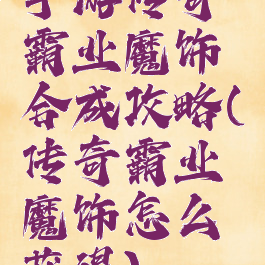 手游传奇
霸业魔饰
合成攻略(
传奇霸业
魔饰怎么
获得)